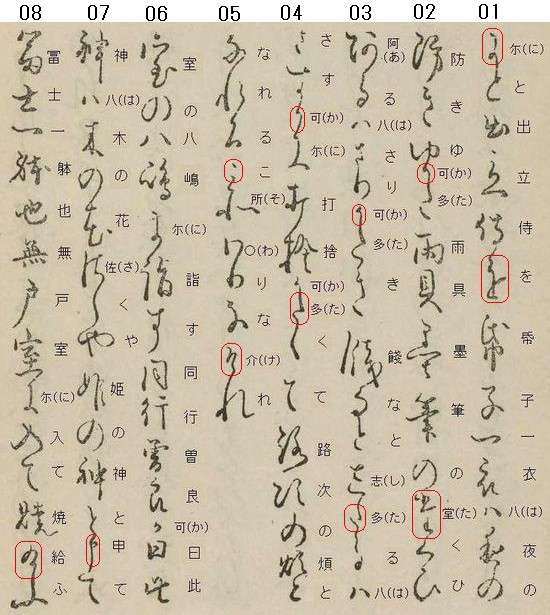 01
尓(に)と出立侍を帋子一衣八(は)夜の
02
防きゆ可(か)多(た)雨具墨筆の堂(た)くひ
03
阿(あ)る八(は)さり可(か)多(た)き餞なと志(し)多(た)る八(は)
04
さす可(か)尓(に)打捨可(か)多(た)くて路次の煩と
05
なれるこ所(そ)〇(わ)りな介(け)れ
06
室の八嶋尓(に)詣す同行曽良可(か)曰此
07
神八(は)木の花佐(さ)くや姫の神と申て
08
富士一躰也無戸室尓(に)入て焼給ふ